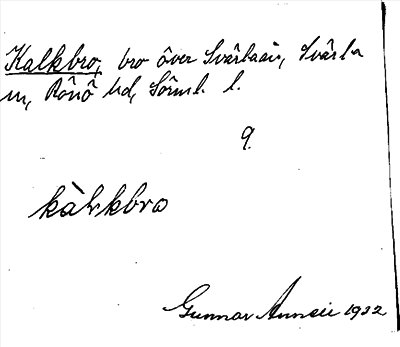 Kalkbro, bro över Svärtaån, Svärta
sn, Rönö hd, Sörml. l.
9.
kàlkbro
Gunnar 1932